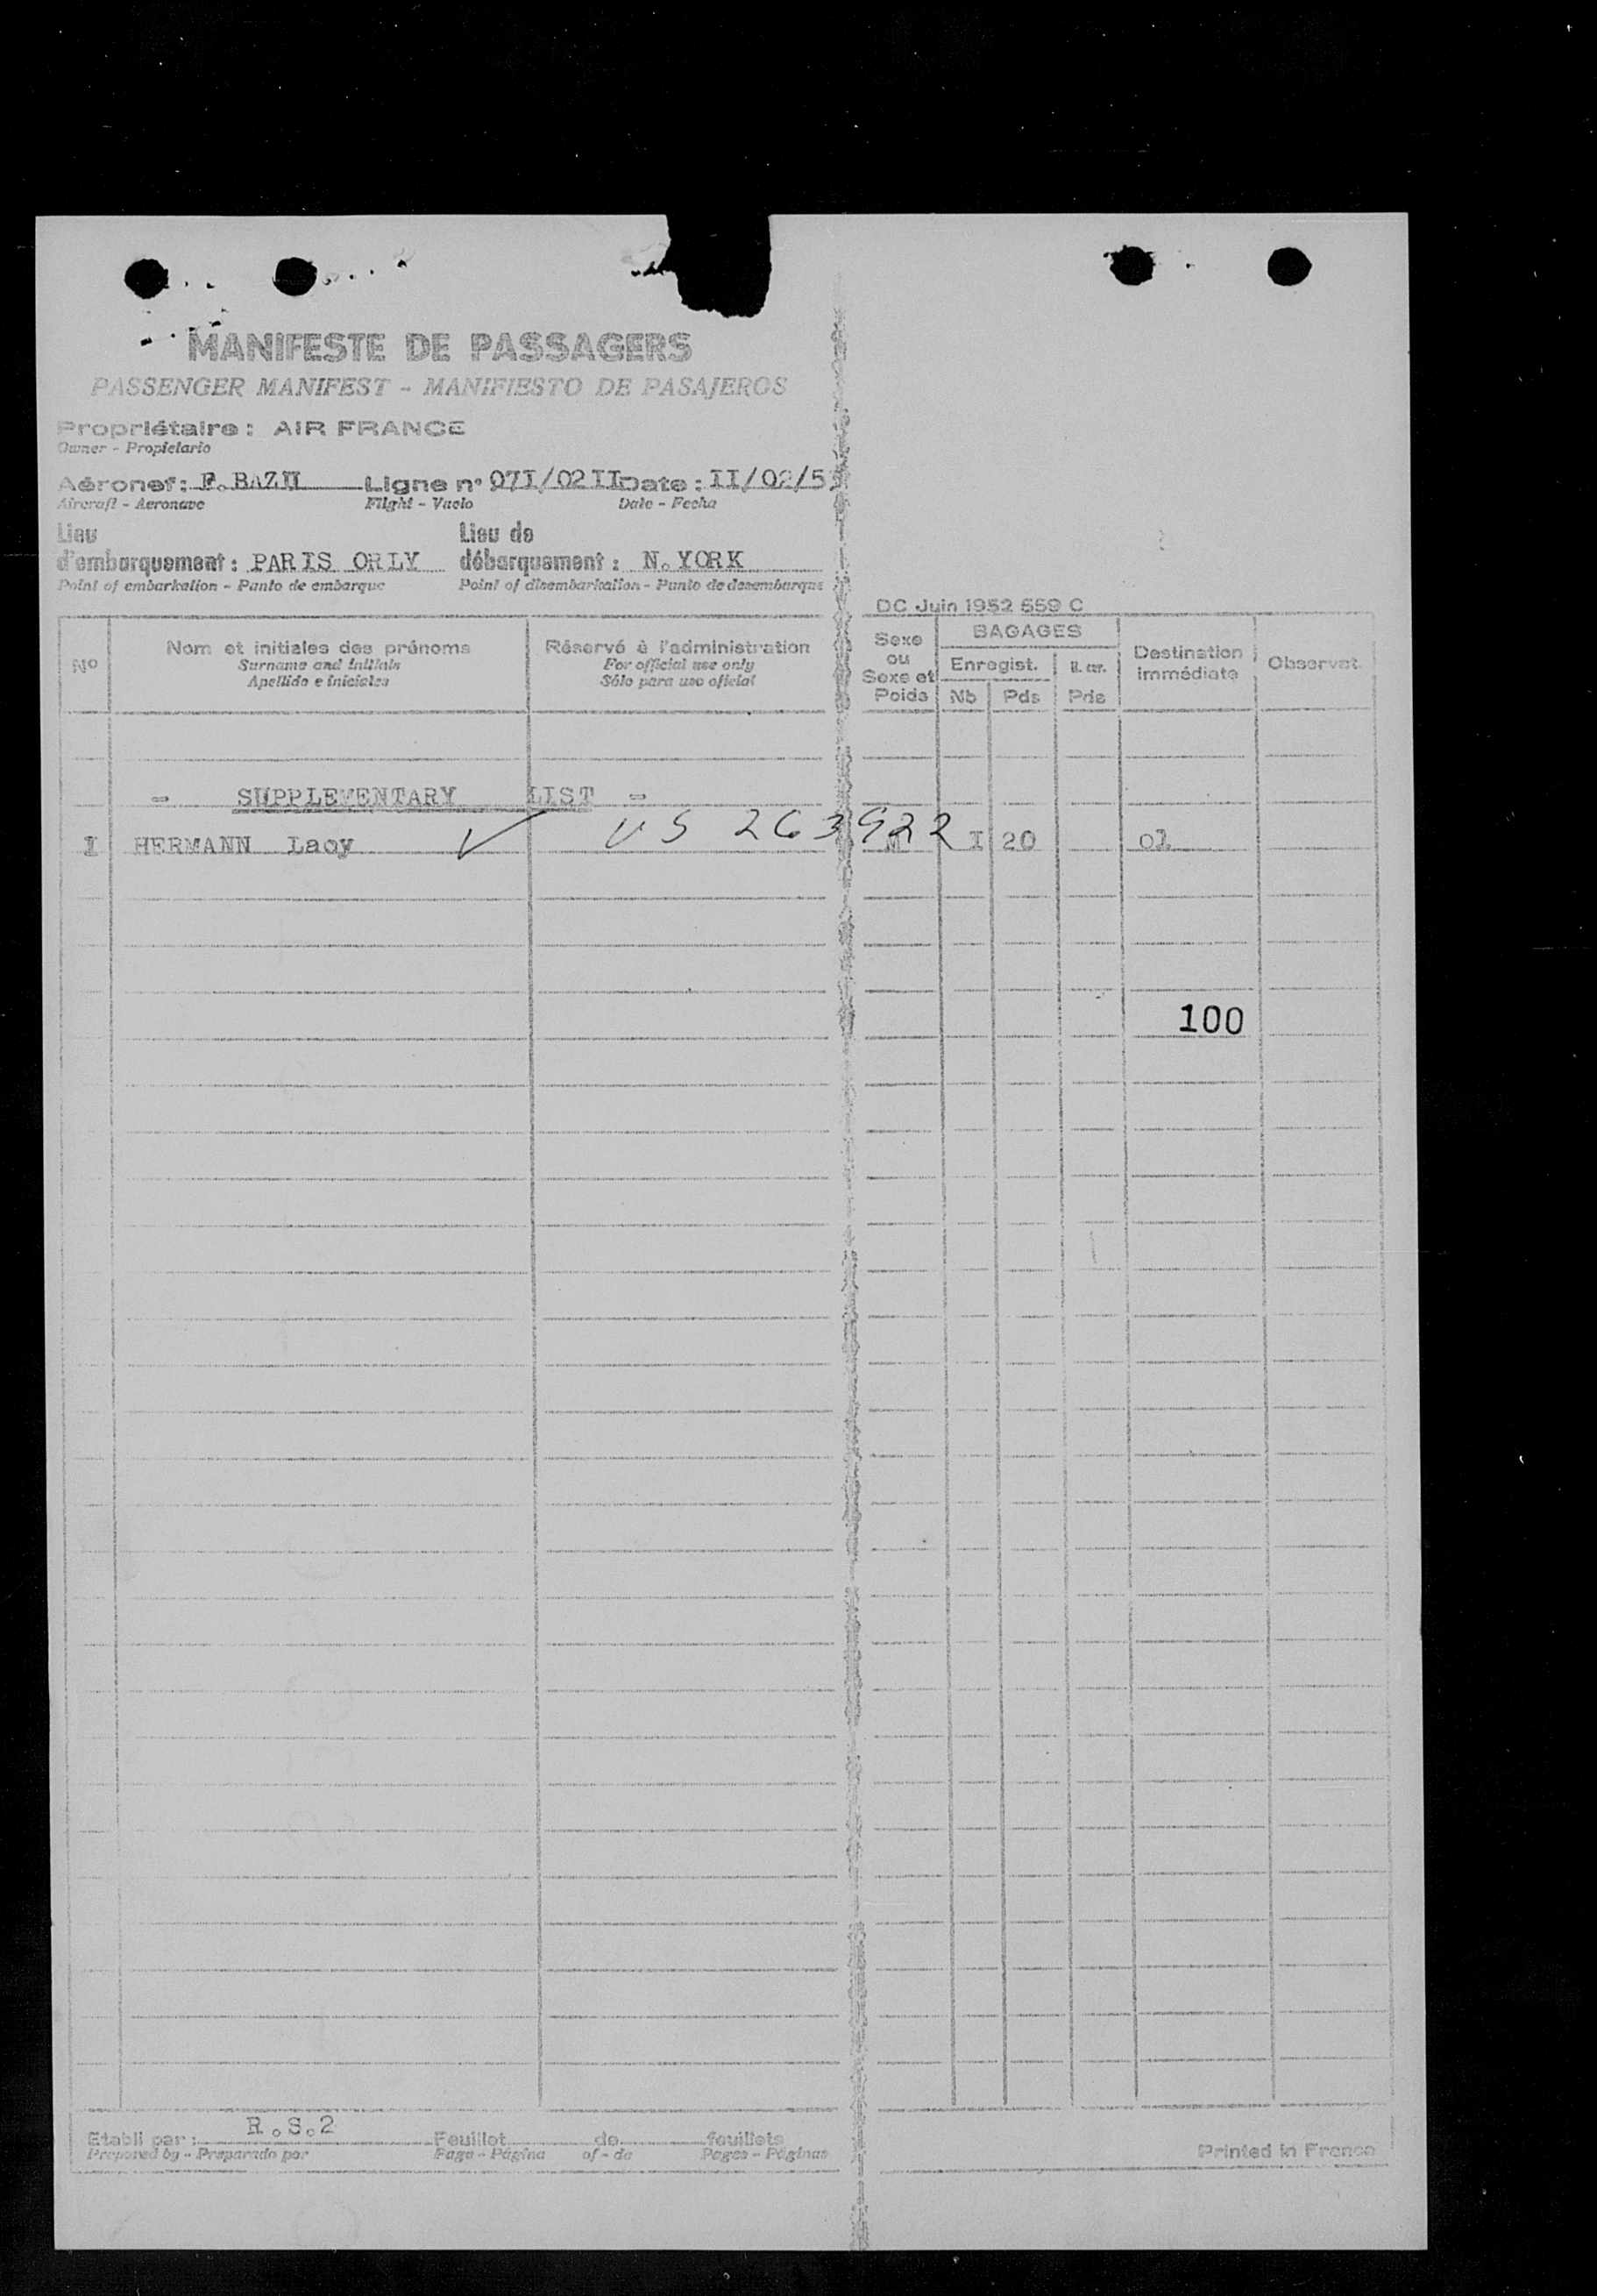 MANIFESTE DE PASSAGERS
PASSENGER MANIFEST - MANIFIESTO DE PASAJEROS
Propriétaire : AIR FRANCE
Owner - Propietario
Aéronef : F.BAZH Ligne n° 07I/02II Date : II/02/5
Aircraft - Aeronave Flight - Vuelo Date - Fecha
Lieu d'embarquement : PARIS ORLY Lieu de débarquement : N.YORK
Point of embarkation - Punto de embarque Point of disembarkation - Punto de desembarque
DC Juin 1952 559 C
Nº Nom et initiales des prénoms Réservé à l'administration Sexe ou Sexe et Poids BAGAGES Destination immédiate Observat.
Surname and initials For official use only Enregist.
Apellido e iniciales Sólo para uso oficial Nb Pds Pds
- SUPPLEMENTARY LIST -
I HERMANN Lacy ✓ US 263922 M I 20 01
100
Etabli par : R.S.2 Feuillet de feuillets
Prepared by - Preparado por Page - Página of - de Pages - Páginas
Printed in France